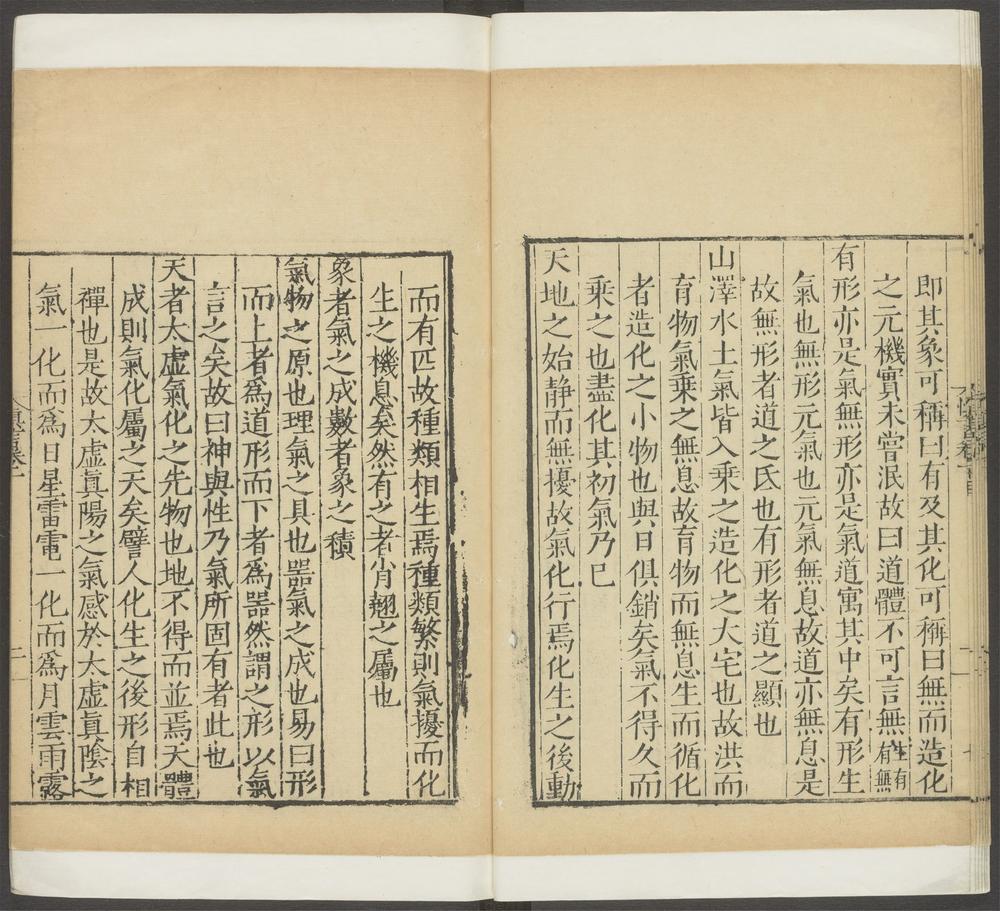 即其象可稱曰有及其化可稱曰無而造化
之元機實未嘗泯故曰道體不可言無生有有無
有形亦是氣無形亦是氣道寓其中矣有形生
氣也無形元氣也元氣無息故道亦無息是
故無形者道之氐也有形者道之顯也
山澤水土氣皆入乘之造化之大宅也故洪而
育物氣乘之無息故育物而無息生而循化
者造化之小物也與日俱銷矣氣不得久而
乘之也盡化其初氣乃已
天地之始静而無擾故氣化行焉化生之後動
而有匹故種類相生焉種類繁則氣擾而化
生之機息矣然有之者肖翹之屬也
象者氣之成數者象之積
氣物之原也理氣之具也噐氣之成也易曰形
而上者爲道形而下者爲噐然謂之形以氣
言之矣故曰神與性乃氣所固有者此也
天者太虛氣化之先物也地不得而並焉天體
成則氣化屬之天矣譬人化生之後形自相
禪也是故太虛眞陽之氣感於太虛眞陰之
氣一化而爲日星雷電一化而爲月雲雨露
二